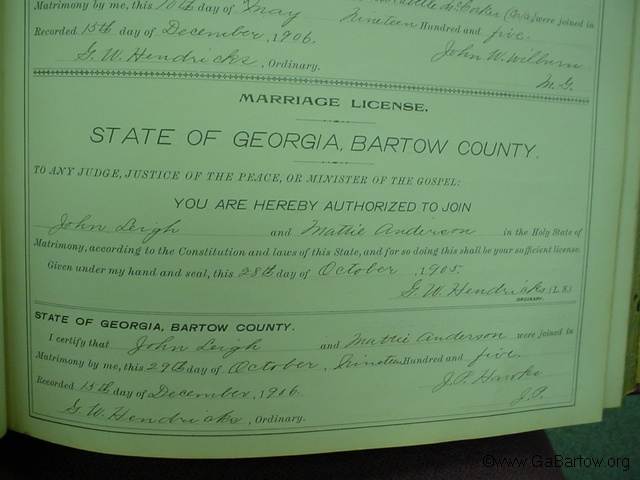 Matrimony by me, this 10th day of May Nineteen Hundred and five.
Recorded 15th day of December, 1906. John W. Wilburn
G. W. Hendricks, Ordinary. M. G.
MARRIAGE LICENSE.
STATE OF GEORGIA, BARTOW COUNTY.
TO ANY JUDGE, JUSTICE OF THE PEACE, OR MINISTER OF THE GOSPEL:
YOU ARE HEREBY AUTHORIZED TO JOIN
John Leigh and Mattie Anderson in the Holy State of
Matrimony, according to the Constitution and laws of this State, and for so doing this shall be your sufficient license.
Given under my hand and seal, this 28th day of October, 1905.
G. W. Hendricks (L. S.)
ORDINARY.
STATE OF GEORGIA, BARTOW COUNTY.
I certify that John Leigh and Mattie Anderson were joined in
Matrimony by me, this 29th day of October, Nineteen Hundred and five.
Recorded 15th day of December, 1906. J. P. Hawks
G. W. Hendricks, Ordinary. J. P.
©www.GaBartow.org